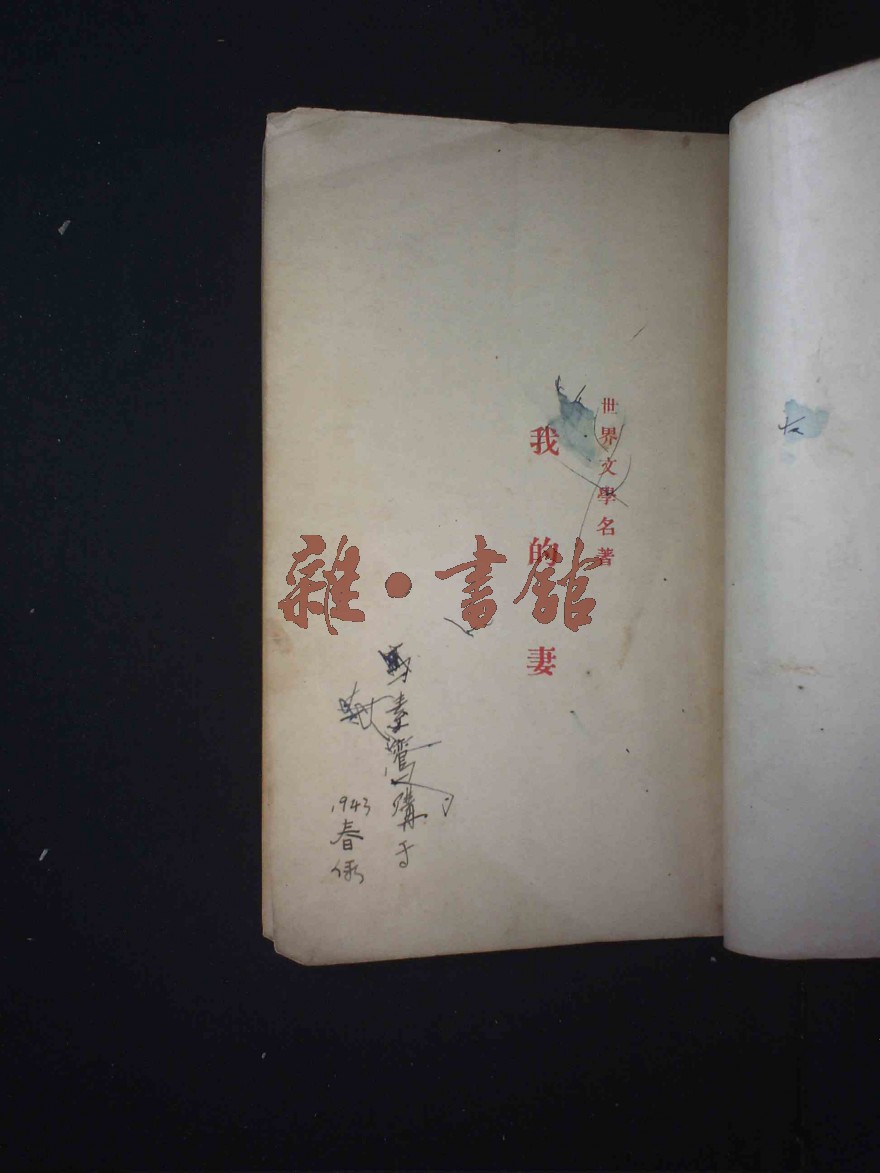 世界文學名著
我的妻
雜·書館
素
購于
1943
春